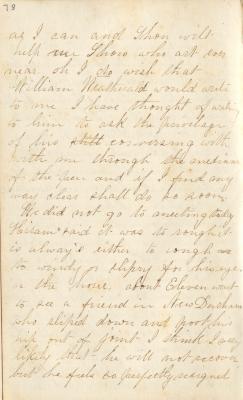 78
as I can and Thou wilt
help me Thou who art ever
near. oh I do wish that
William would write
to me I have thought of
to him to ask the priviledge
of his still conversing with
with me through the medium
of the pen and if I find any
way clear shall do so soon
We did not go to meeting today
said it was to rough it
is always either to rough or
to windy or slipry for his
in the house, about Eleven went
to see a friend in New Durham
who sliped down and put his
hip out of joint I think it very
likely that he will not recover
but he feels so perfectly resigned